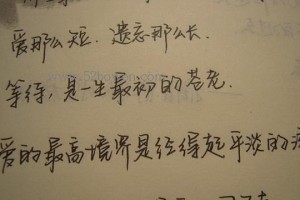 爱那么短.遗忘那么长.
等待,是一生最初的苍老.
爱的最高境界是经得起平淡的